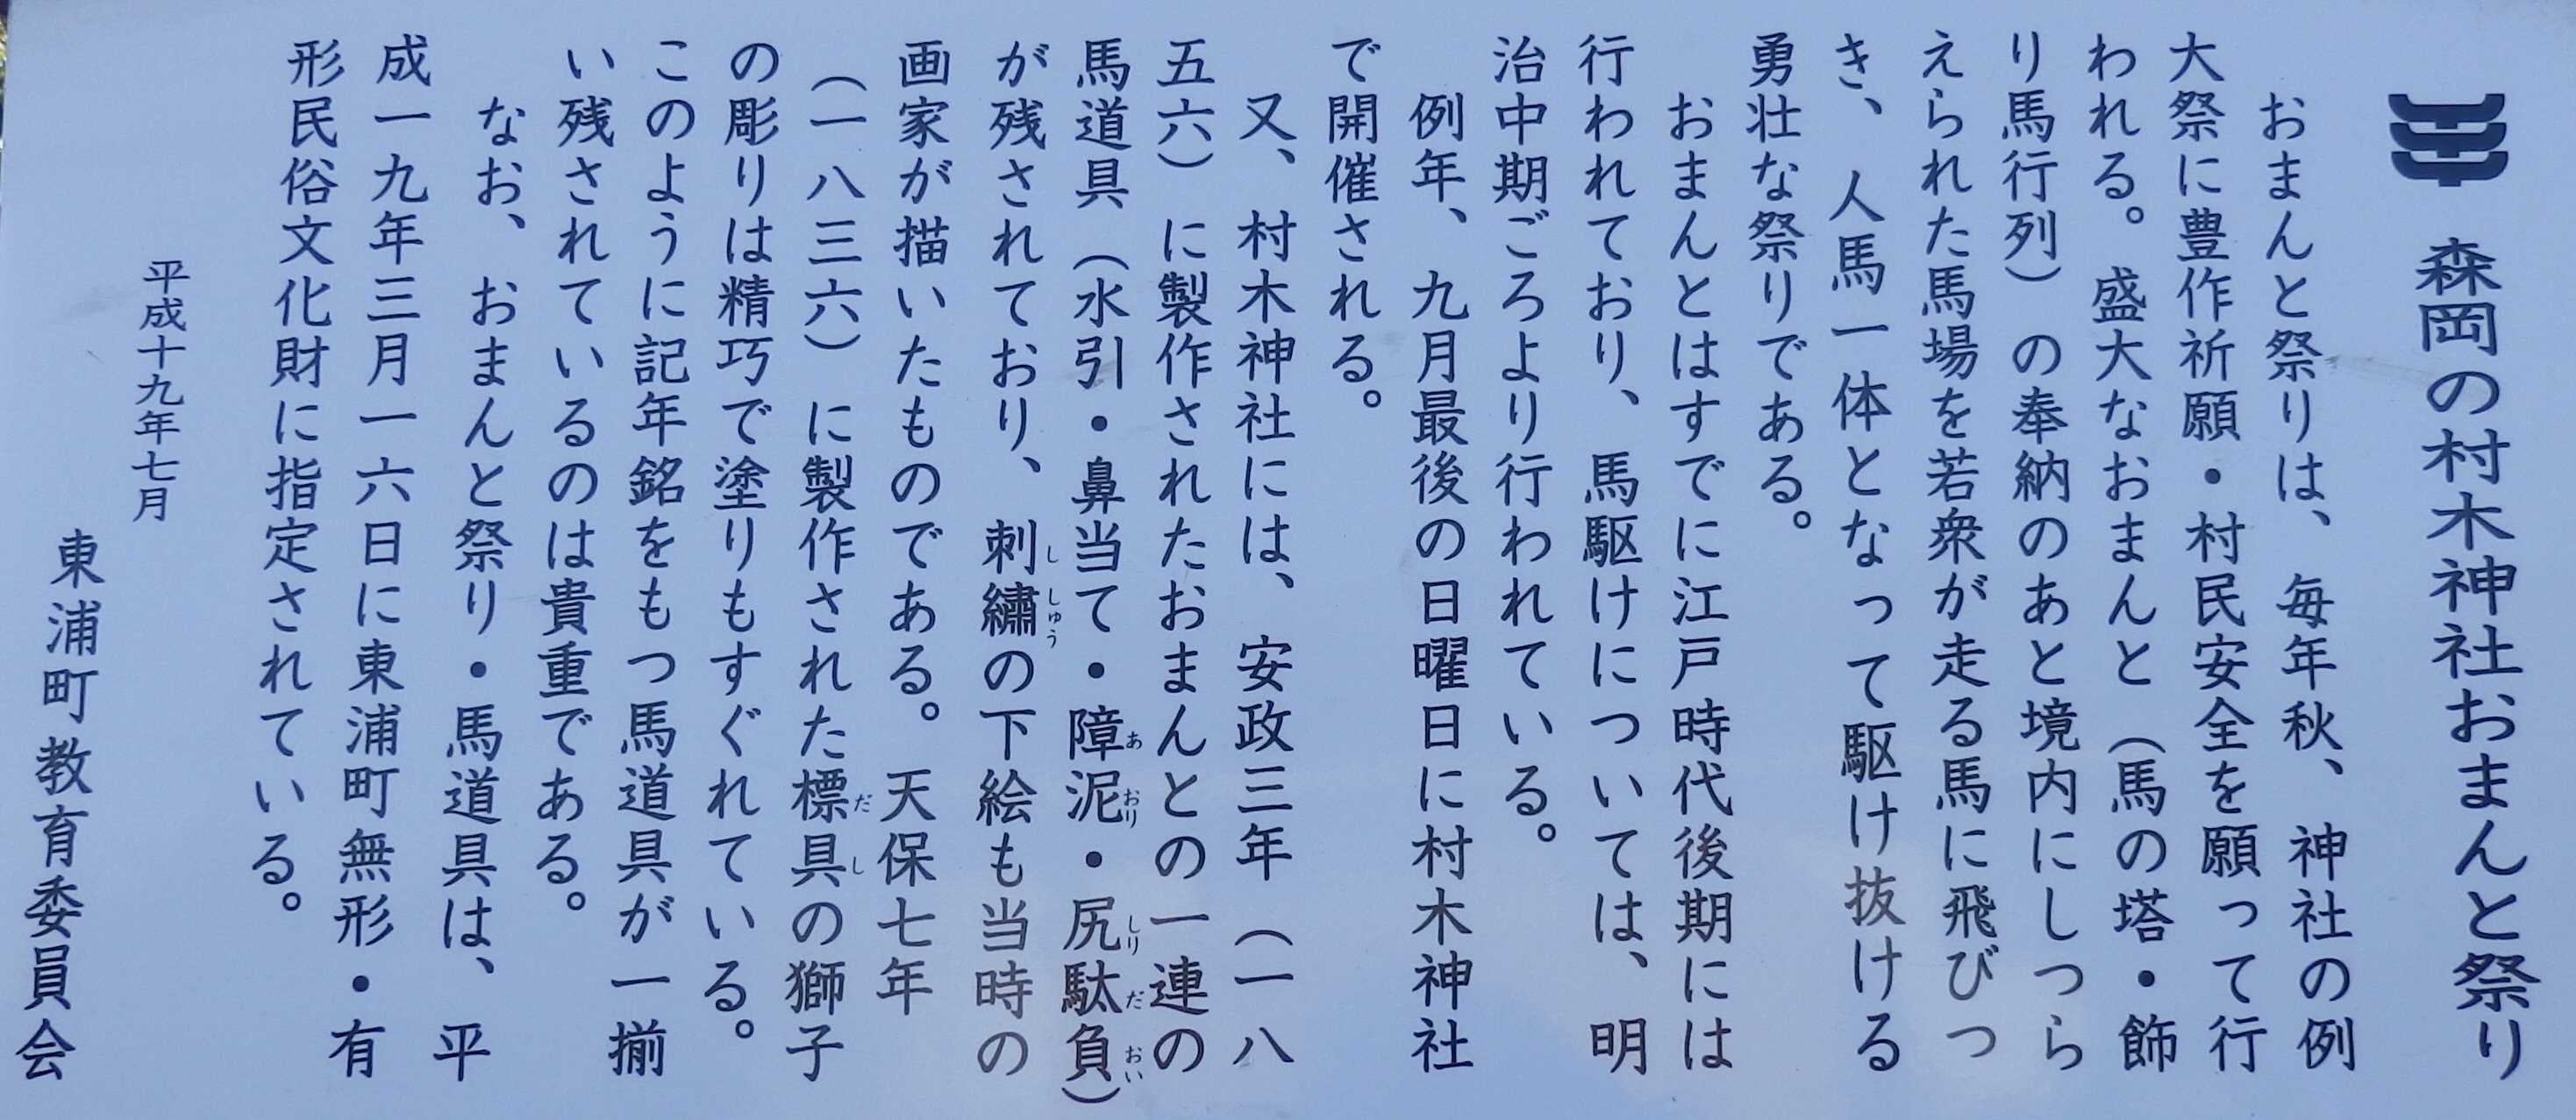 森岡の村木神社おまんと祭り
おまんと祭りは、毎年秋、神社の例
大祭に豊作祈願・村民安全を願って行
われる。盛大なおまんと（馬の塔・飾
り馬行列）の奉納のあと境内にしつら
えられた馬場を若衆が走る馬に飛びつ
き、人馬一体となって駆け抜ける
勇壮な祭りである。
おまんとはすでに江戸時代後期には
行われており、馬駆けについては、明
治中期ごろより行われている。
例年、九月最後の日曜日に村木神社
で開催される。
又、村木神社には、安政三年（一八
五六）に製作されたおまんとの一連の
馬道具（水引・鼻当て・障泥・尻駄負）
あおり
しりだおい
が残されており、刺繡の下絵も当時の
ししゅう
画家が描いたものである。天保七年
（一八三六）に製作された標具の獅子
だし
の彫りは精巧で塗りもすぐれている。
このように記年銘をもつ馬道具が一揃
い残されているのは貴重である。
なお、おまんと祭り・馬道具は、平
成一九年三月一六日に東浦町無形・有
形民俗文化財に指定されている。
平成十九年七月
東浦町教育委員会